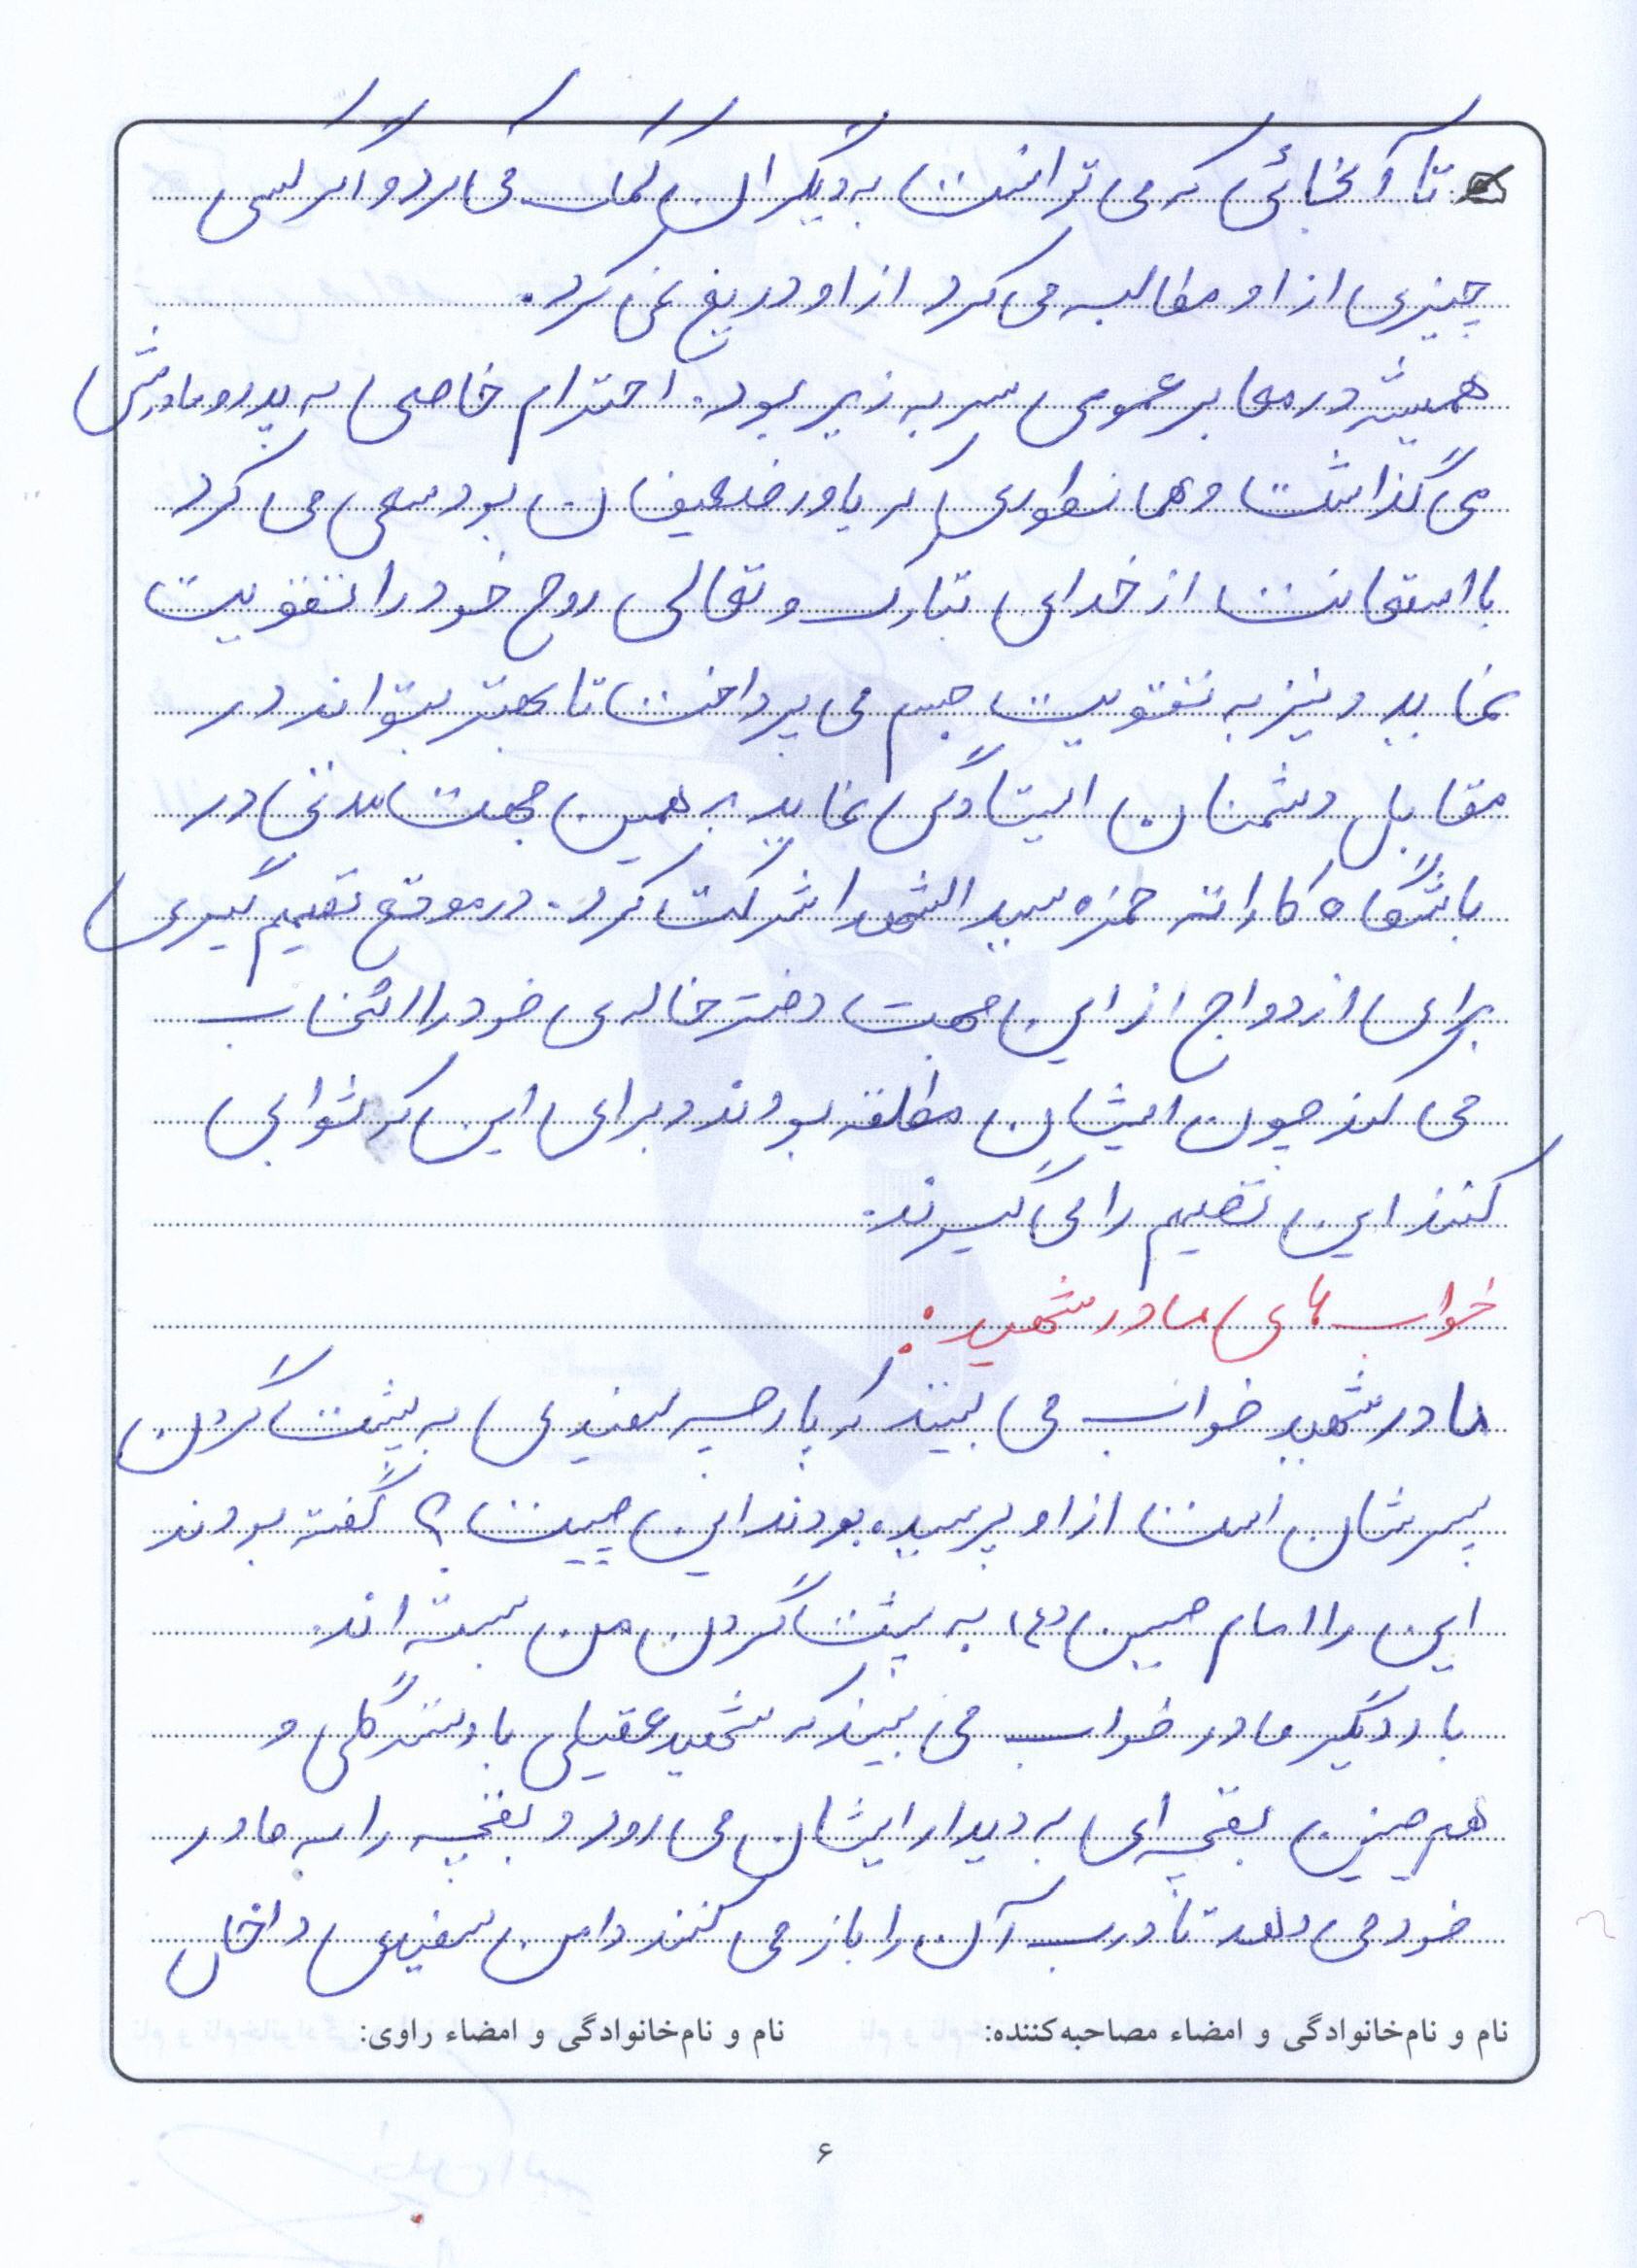 تا آنجائی که می توانست به دیگران کمک می کرد و اگر کسی
چیزی از او مطالبه می کرد از او دریغ نمی کرد.
همیشه در معابر عمومی سر به زیر بود. احترام خاصی به پدر و مادرش
می گذاشت و همانطوری که یاور ضعیفان بود سعی می کرد
با استعانت از خدای تبارک و تعالی روح خود را تقویت
نماید و نیز به تقویت جسم می پرداخت تا بهتر بتواند در
مقابل دشمنان ایستادگی نماید به همین جهت مدتی در
باشگاه کاراته حمزه سید الشهدا شرکت کرد. در موقع تصمیم گیری
برای ازدواج از این جهت دختر خاله ی خود را انتخاب
می کند چون ایشان مطلقه بودند و برای این که ثوابی
کنند این تصمیم را می گیرند.
خواب های مادر شهید:
مادر شهید خواب می بیند که پارچه سفیدی به پشت گردن
پسرشان است از او پرسیده بودند این چیست؟ گفته بودند
این را امام حسین (ع) به پشت گردن من بسته اند.
بار دیگر مادر خواب می بیند که شهید عقیلی با دسته گلی و
هم چنین بقچه ای به دیدار ایشان می رود و بقچه را به مادر
خود می دهد تا درب آن را باز می کنند و این سفیدی داخل
نام و نام‌خانوادگی و امضاء مصاحبه‌کننده: نام و نام‌خانوادگی و امضاء راوی:
۶